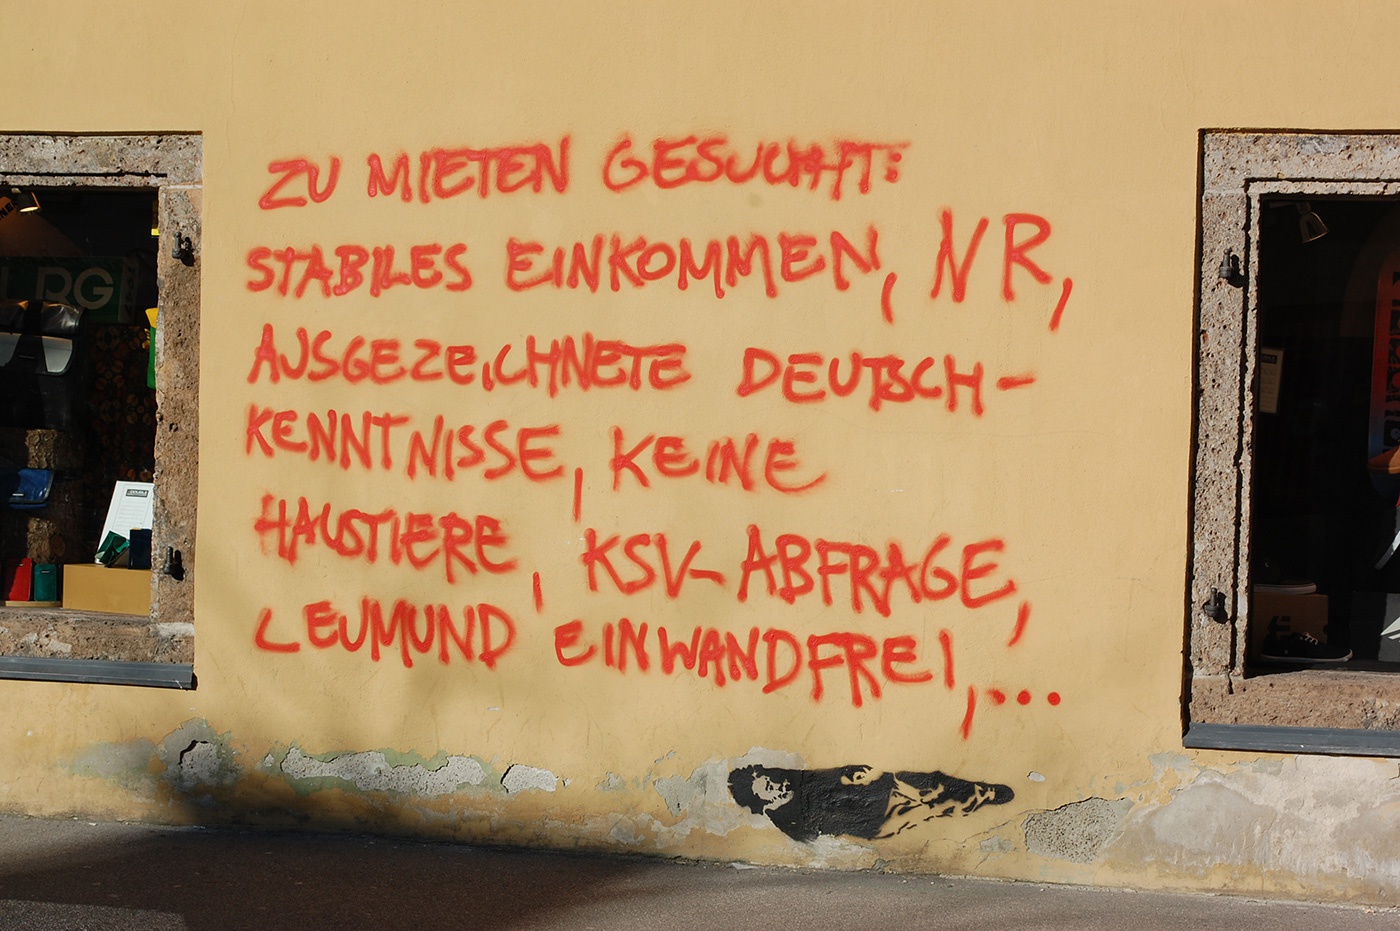 ZU MIETEN GESUCHT:
STABILES EINKOMMEN, NR,
AUSGEZEICHNETE DEUTSCH-
KENNTNISSE, KEINE
HAUSTIERE, KSV-ABFRAGE,
LEUMUND EINWANDFREI,...